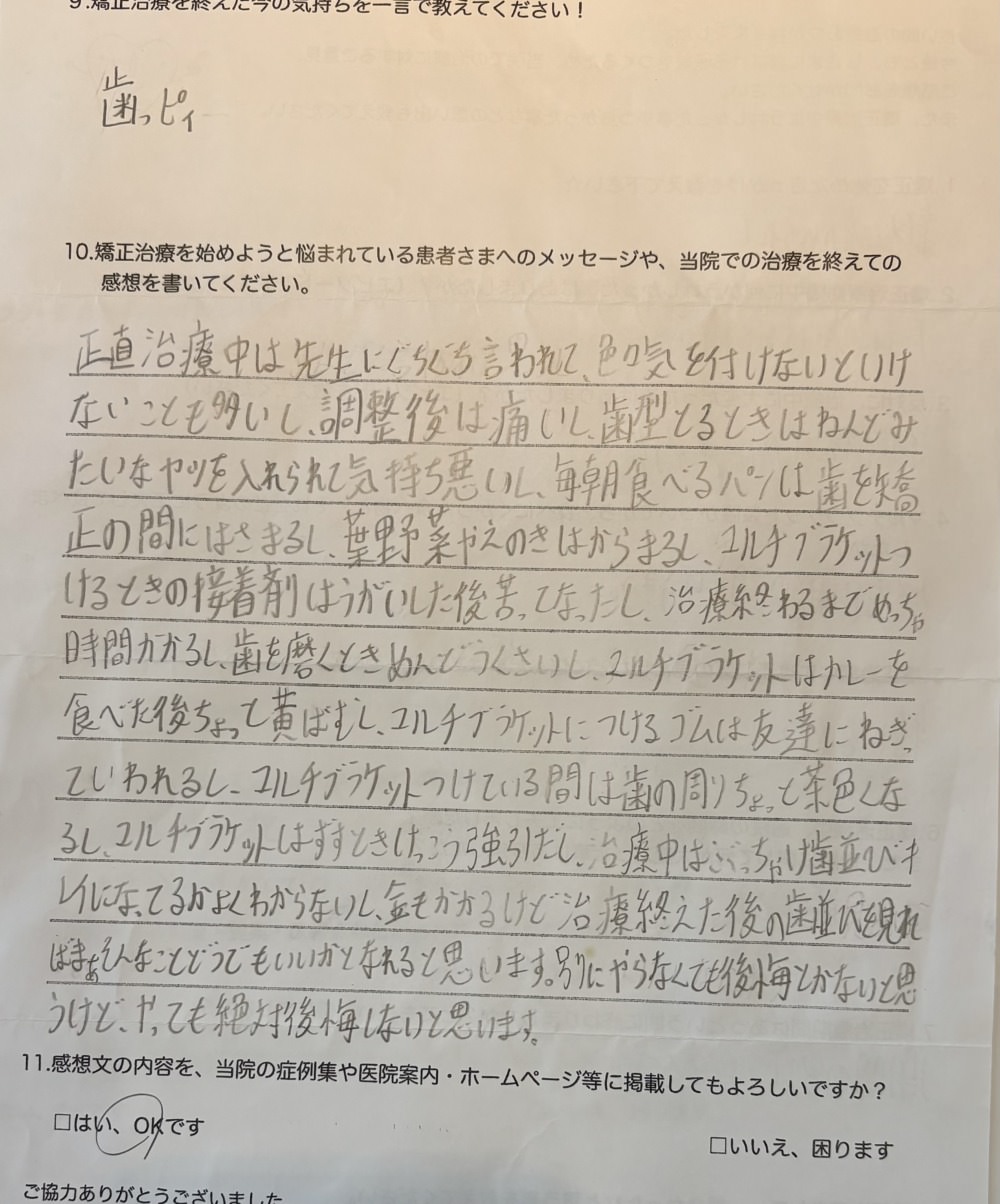 9.矯正治療を終えた今の気持ちを一言で教えてください！
歯っピィ
10.矯正治療を始めようと悩まれている患者さまへのメッセージや、当院での治療を終えての
感想を書いてください。
正直治療中は先生にぐちぐち言われて、色々気を付けないといけ
ないことも多いし、調整後は痛いし、歯型とるときはねんどみ
たいなヤツを入れられて気持ち悪いし、毎朝食べるパンは歯と矯
正の間にはさまるし、葉野菜やえのきはからまるし、マルチブラケットつ
けるときの接着剤はうがいした後苦ってなったし、治療終わるまでめっちゃ
時間かかるし、歯を磨くときめんどうくさいし、マルチブラケットはカレーを
食べた後ちょっと黄ばむし、マルチブラケットにつけるゴムは友達にねぎっ
ていわれるし、マルチブラケットつけている間は歯の周りちょっと茶色くな
るし、マルチブラケットはずすときけっこう強引だし、治療中はぶっちゃけ歯並びキ
レイになってるかよくわからないし、金もかかるけど治療終えた後の歯並びを見れ
ばまぁそんなことどうでもいいかとなれると思います。別にやらなくても後悔とかないと思
うけど、やっても絶対後悔しないと思います。
11.感想文の内容を、当院の症例集や医院案内・ホームページ等に掲載してもよろしいですか？
□はい、OKです
□いいえ、困ります
ご協力ありがとうございました